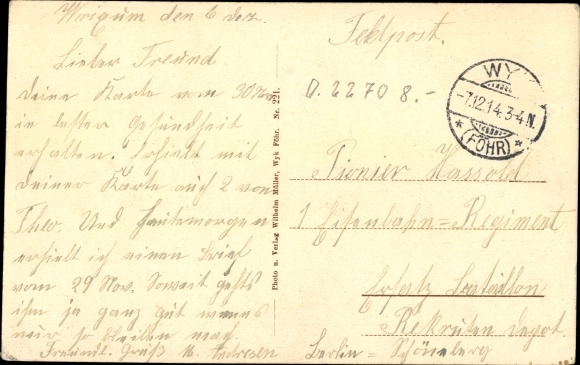 Wrixum den 6 Dez.
Lieber Freund
Deine Karte vom 30 Nov
in bester Gesundheit
erhalten. Erhielt mit
deiner Karte auch 2 von
Theo. Und Heutemorgen
erhielt ich einen Brief
vom 29 Nov. Soweit gehts
ihm ja ganz gut wenns
nur so bleiben mag.
Freundl. Gruß N. Andresen
Photo u. Verlag Wilhelm Müller, Wyk Föhr. Nr. 221.
Feldpost.
D. 2270 8.-
WY
-7.12.14.3-4N.
*(FÖHR)*
Pionier Hassold
1 Eisenbahn=Regiment
Ersatz Bataillon
Rekruten Depot.
Berlin=Schöneberg